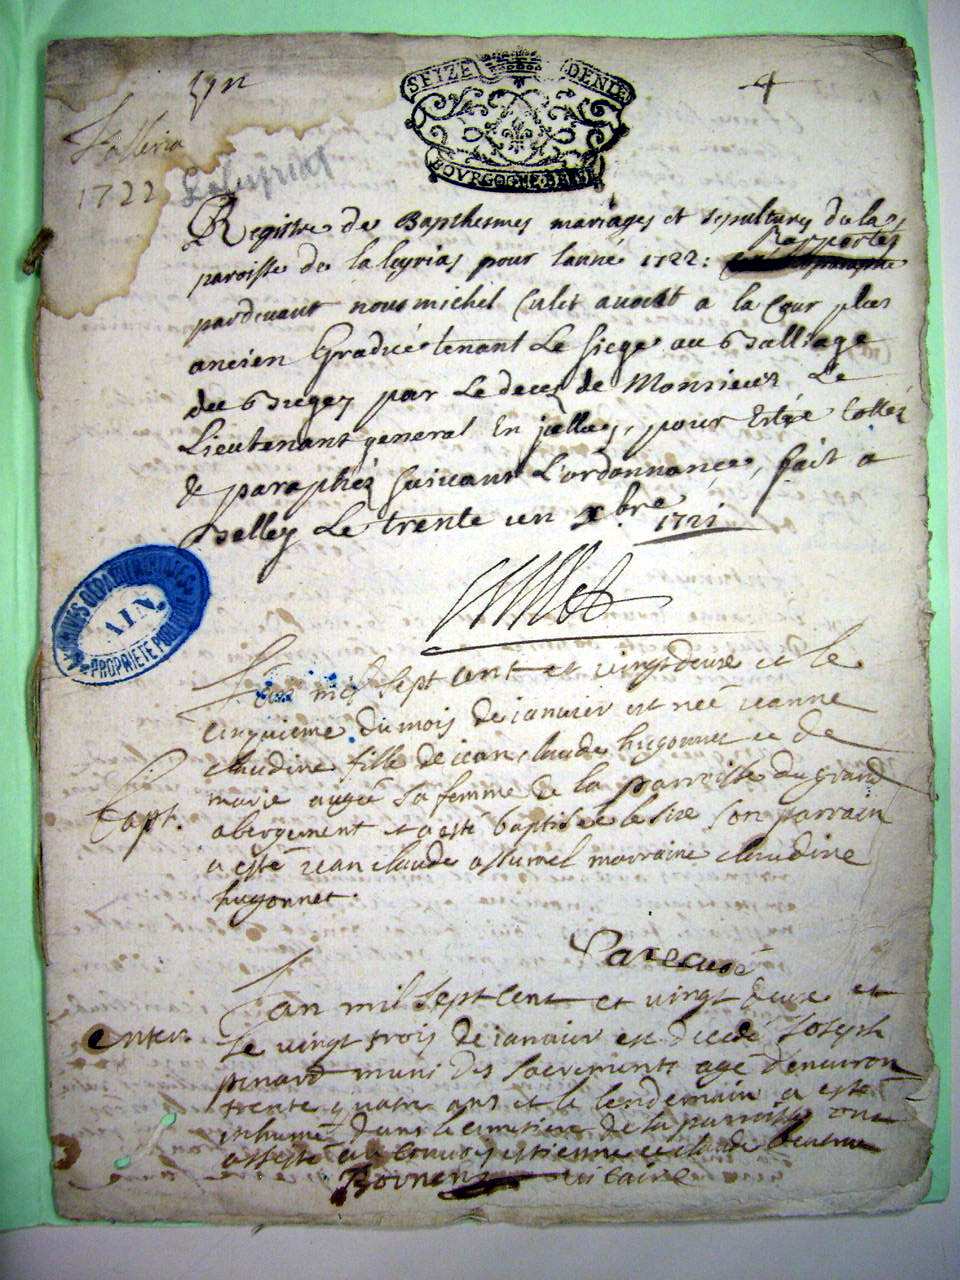 SEIZE DENIE
BOVRGOGNE BRESSE
4
1722 Laleyriat
Registre de Bapthesmes mariages et sepultures de la
paroisse de laleyrias pour lannée 1722: Raportés
pardevant nous michel Culet avocat a la Cour plus
ancien Gradué tenant Le siege au Balliage
du Bugey par Le deces de Monsieur Le
Lieutenant general En jcelluy, pour Estre Cottéz
& paraphéz suivant L'ordonnance, fait a
Belley Le trente un xbre 1721
ARCHIVES DEPARTEMENTALES
AIN
PROPRIETE PUBLIQUE
Lan mil sept cent et vingt deux et le
cinquieme du mois de ianvier est neé ieanne
claudine fille de iean claude hugonnet et de
marie augée sa femme de la parroisse du grand
Bapt.
abergement et a esté baptisée le sixe son parrain
a esté iean claude assumel marraine claudine
hugonnet.
Lan mil sept cent et vingt deux et
enter.
le vingt trois de ianvier est decedé Joseph
pinard muni des sacrements agé denviron
trente quatre ans et le lendemain a esté
inhumé dans le cimetiere de la parroisse ont
assisté au convoy estienne et claude
vicaire